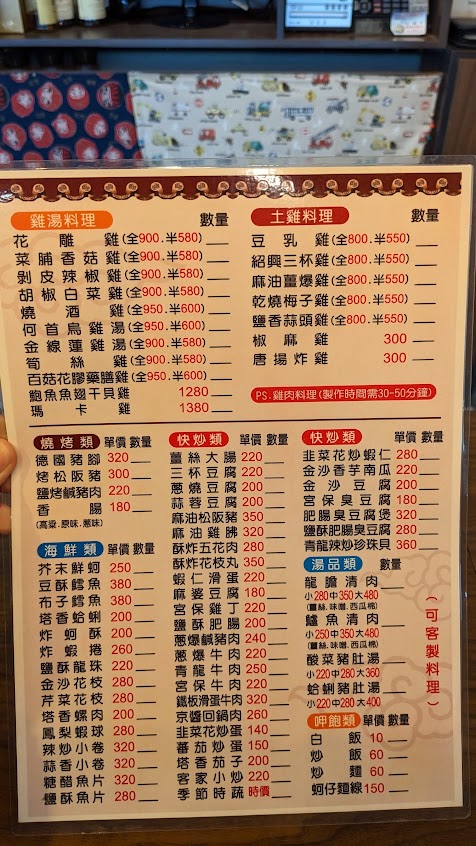 雞湯料理 數量
花雕雞(全900.半580)
菜脯香菇雞(全900.半580)
剝皮辣椒雞(全900.半580)
胡椒白菜雞(全900.半580)
燒酒雞(全950.半600)
何首烏雞湯(全950.半600)
金線蓮雞湯(全900.半580)
筍絲雞(全900.半580)
百菇花膠藥膳雞(全950.半600)
鮑魚魚翅干貝雞 1280
瑪卡雞 1380
土雞料理 數量
豆乳雞(全800.半550)
紹興三杯雞(全800.半550)
麻油薑爆雞(全800.半550)
乾燒梅子雞(全800.半550)
鹽香蒜頭雞(全800.半550)
椒麻雞 300
唐揚炸雞 300
PS:雞肉料理(製作時間需30-50分鐘)
燒烤類 單價 數量
德國豬腳 320
烤松阪豬 300
鹽烤鹹豬肉 220
香腸 180
(高粱.原味.蔥味)
海鮮類 單價 數量
芥末鮮蚵 250
豆酥鱈魚 380
布子鱈魚 380
塔香蛤蜊 200
炸蚵酥 200
炸蝦捲 260
鹽酥龍珠 220
金沙花枝 280
芹菜花枝 280
塔香螺肉 200
鳳梨蝦球 280
辣炒小卷 320
蒜香小卷 320
糖醋魚片 320
鹽酥魚片 280
快炒類 單價 數量
薑絲大腸 220
三杯豆腐 200
蔥燒豆腐 200
蒜蓉豆腐 200
麻油松阪豬 350
麻油雞腓 320
酥炸五花肉 280
酥炸花枝丸 350
蝦仁滑蛋 220
麻婆豆腐 180
宮保雞丁 220
鹽酥肥腸 200
蔥爆鹹豬肉 240
蔥爆牛肉 220
青龍牛肉 250
宮保牛肉 220
鐵板滑蛋牛肉 320
京醬回鍋肉 260
韭菜花炒蛋 140
蕃茄炒蛋 150
塔香茄子 200
客家小炒 220
季節時蔬 時價
快炒類 單價 數量
韭菜花炒蝦仁 280
金沙香芋南瓜 220
金沙豆腐 200
宮保臭豆腐 180
肥腸臭豆腐煲 320
鹽酥肥腸臭豆腐 280
青龍辣炒珍珠貝 360
湯品類 數量
龍膽清肉
小280中350大480
(薑絲.味噌.西瓜棉)
鱸魚清肉
小250中350大480
(薑絲.味噌.西瓜棉)
酸菜豬肚湯
小220中280大360
蛤蜊豬肚湯
小220中280大400
(可客製料理)
呷飽類 單價 數量
白飯 10
炒飯 60
炒麵 60
蚵仔麵線 150